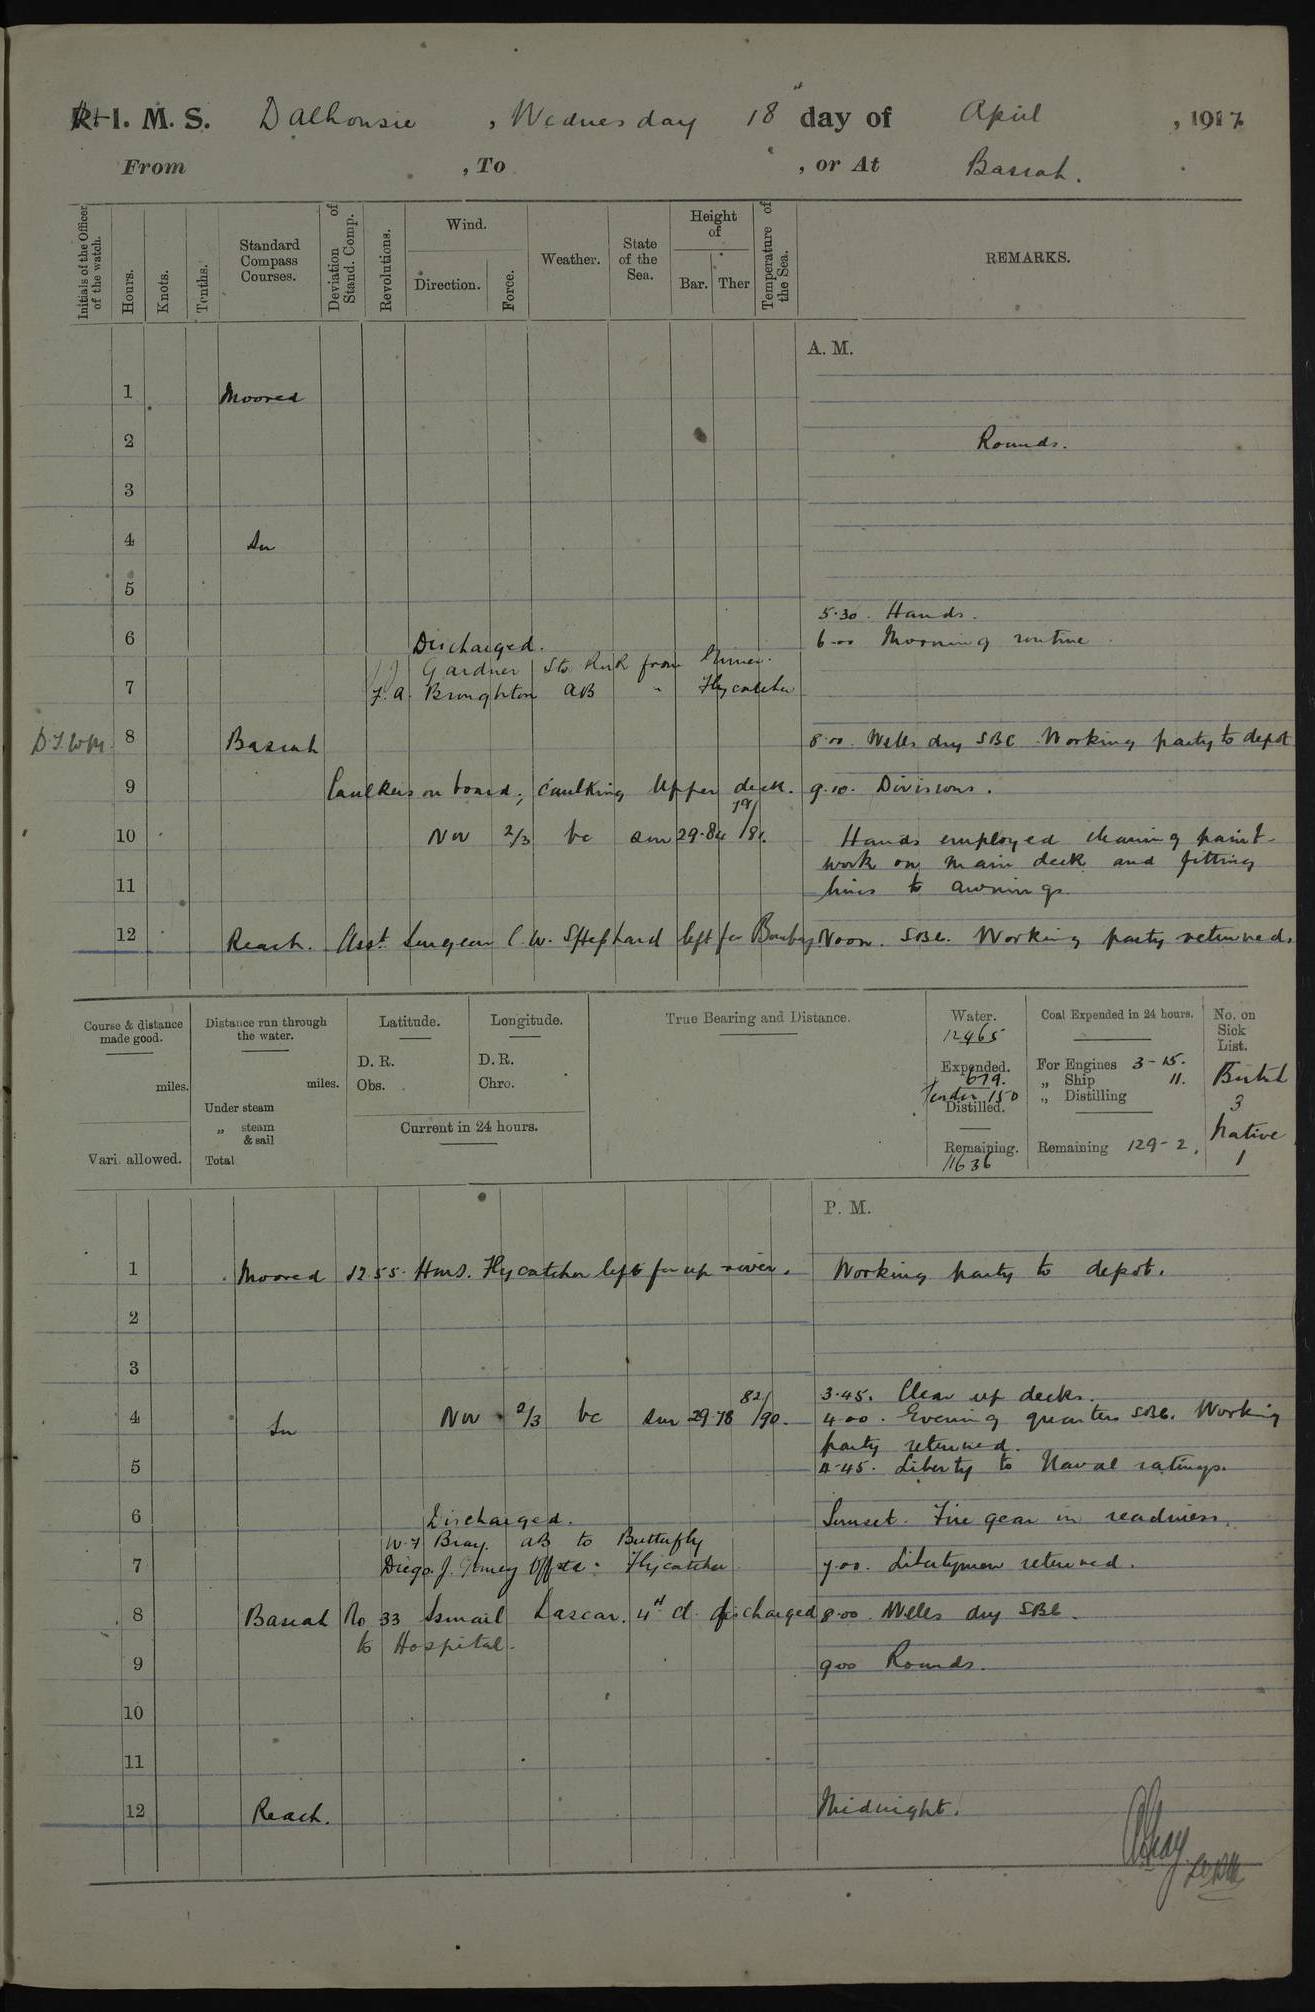 R. I. M. S. Dalhousie , Wednesday 18th day of April , 1917
From , To , or At Basrah.
Initials of the Officer of the watch.
Hours.
Knots.
Tenths.
Standard Compass Courses.
Deviation of Stand. Comp.
Revolutions.
Wind.
Direction.
Force.
Weather.
State of the Sea.
Height of
Bar. Ther
Temperature of the Sea.
REMARKS.
A. M.
1 Moored
2 Rounds.
3
4 In
5
5.30. Hands.
6 Discharged. 6.00 Morning routine
Gardner Sto RNR from
7 F. A. Broughton AB " Flycatcher
8 Basrah 8.00. Wells dry SBC Working party to depot
9 Caulkers on board, caulking Upper deck. 9.10. Divisions.
10 NW 2/3 bc sm 29.84 79/81. Hands employed cleaning paint-
work on main deck and fitting
11 lines to awnings.
12 Reach. Asst Surgeon C. W. Shephard left for Bombay Noon. SBC. Working party returned.
Course & distance made good.
miles.
Vari. allowed.
Distance run through the water.
miles.
Under steam
„ steam & sail
Total
Latitude.
D. R.
Obs.
Longitude.
D. R.
Chro.
Current in 24 hours.
True Bearing and Distance.
Water.
12465
Expended.
679.
Tender 150
Distilled.
Remaining.
11636
Coal Expended in 24 hours.
For Engines 3-15.
„ Ship 11.
„ Distilling
Remaining 129-2.
No. on Sick List.
British
3
Native
1
P. M.
1 Moored 12.55. H.M.S. Flycatcher left for up river. Working party to depot.
2
3
3.45. Clear up decks.
4 In NW 2/3 bc sm 29.78 82/90. 4.00. Evening quarters SBC. Working
party returned.
5 4.45. Liberty to Naval ratings.
6 Discharged. Sunset. Fire gear in readiness.
W. F Bray. AB to Butterfly
7 Diego. J. Flycatcher 7.00. Libertymen returned.
8 Basrah No 33 Ismail Lascar. 4th cl. discharged 8.00. Wells dry SBC.
to Hospital.
9 9.00 Rounds.
10
11
12 Reach. Midnight.